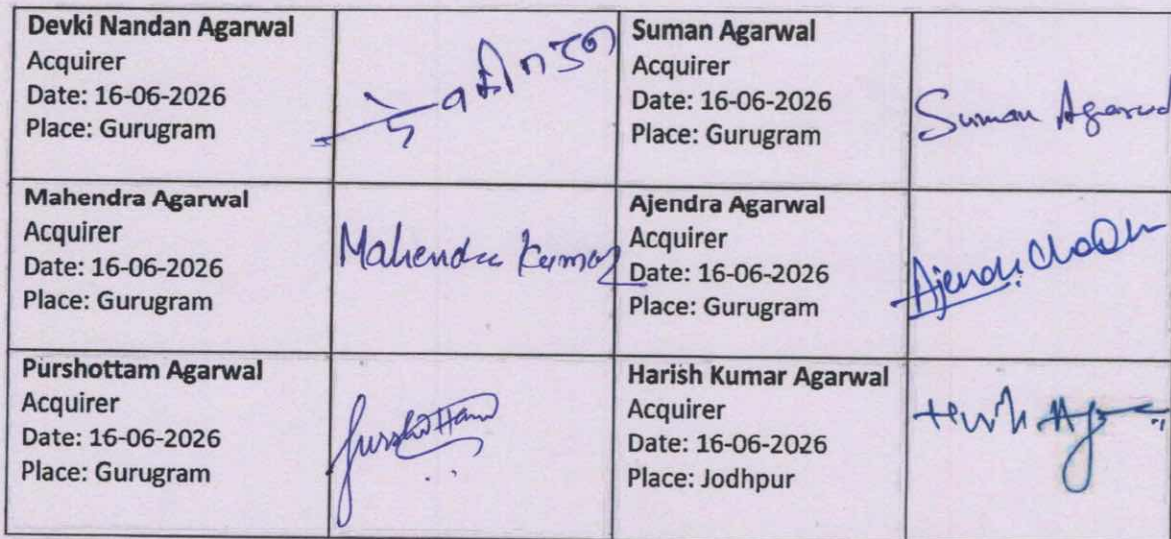 Devki Nandan Agarwal
Acquirer
Date: 16-06-2026
Place: Gurugram
Suman Agarwal
Acquirer
Date: 16-06-2026
Place: Gurugram
Suman Agarwal
Mahendra Agarwal
Acquirer
Date: 16-06-2026
Place: Gurugram
Mahendra Kumar
Ajendra Agarwal
Acquirer
Date: 16-06-2026
Place: Gurugram
Purshottam Agarwal
Acquirer
Date: 16-06-2026
Place: Gurugram
Harish Kumar Agarwal
Acquirer
Date: 16-06-2026
Place: Jodhpur